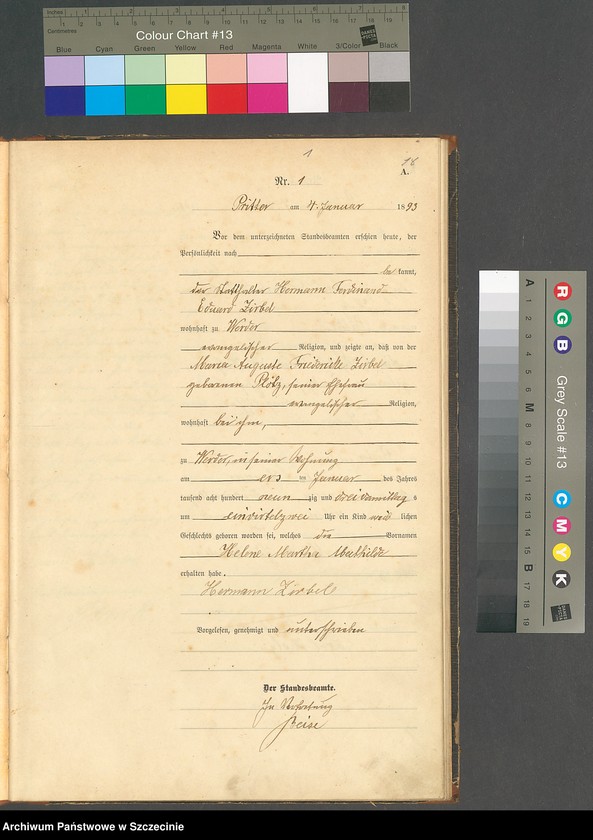 Inches
Centimetres
Colour Chart #13
Blue Cyan Green Yellow Red Magenta White 3/Color Black
1
A.
Nr. 1
Pritter am 4. Januar 1893
Vor dem unterzeichneten Standesbeamten erschien heute, der
Persönlichkeit nach
be kannt,
der Statthalter Hermann Ferdinand
Eduard Zirbel
wohnhaft zu Werder
evangelischer Religion, und zeigte an, daß von der
Maria Auguste Friederike Zirbel
geborenen Plötz, seiner Ehefrau
evangelischer Religion,
wohnhaft bei ihm,
zu Werder, in seiner Wohnung
am ers ten Januar des Jahres
tausend acht hundert neun zig und drei Vormittag s
um einviertelzwei Uhr ein Kind weib lichen
Geschlechts geboren worden sei, welches die Vornamen
Helene Martha Mathilde
erhalten habe.
Hermann Zirbel
Vorgelesen, genehmigt und unterschrieben
Der Standesbeamte.
In Vertretung
Grey Scale #13
R G B
C M Y K
A 1 2 3 4 5 6 M 8 9 10 11 12 13 14 15 B 17 18 19
Archiwum Państwowe w Szczecinie